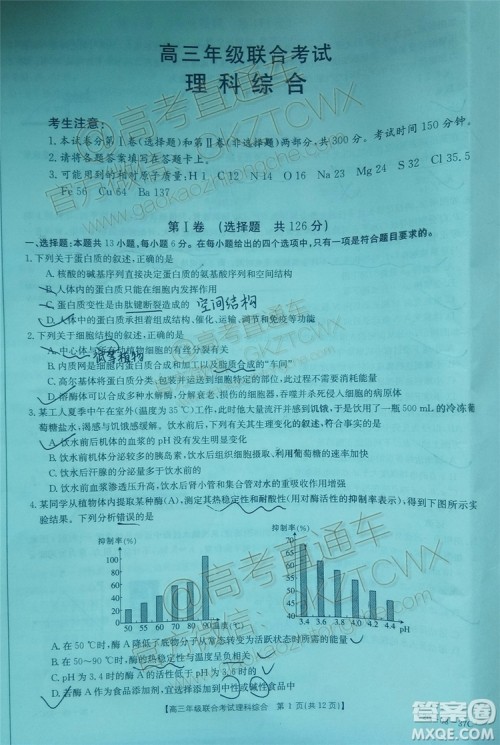 高三年级联合考试
理科综合
考生注意:
1.本试卷分第Ⅰ卷(选择题)和第Ⅱ卷(非选择题)两部分,共300分。考试时间150分钟。
2.请将各题答案填写在答题卡上。
3.可能用到的相对原子质量:H 1 C 12 N 14 O 16 Na 23 Mg 24 S 32 Cl 35.5
Fe 56 Cu 64 Ba 137
第Ⅰ卷 (选择题 共126分)
一、选择题:本题共13小题,每小题6分。在每小题给出的四个选项中,只有一项是符合题目要求的。
1.下列关于蛋白质的叙述,正确的是
A.核酸的碱基序列直接决定蛋白质的氨基酸序列和空间结构
B.人体内的蛋白质只能在细胞内发挥作用
C.蛋白质变性是由肽键断裂造成的 空间结构
D.人体的蛋白质承担着组成结构、催化、运输、调节和免疫等功能
2.下列关于细胞结构的叙述,正确的是
A.中心体与 动植物细胞的有丝分裂有关
低等植物
B.内质网是细胞内蛋白质加工以及脂质合成的“车间”
C.
D.溶酶体含有多种水解酶,分解衰老、损伤的细胞器,吞噬并杀死侵入细胞的病原体
3.某工人夏季中午在室外(温度为35℃)工作时,此时他大量流汗并感到饥饿,于是饮用了一瓶500 mL的冷冻葡
萄糖盐水,感觉口渴与饥饿感缓解。下列有关叙述,符合事实的是
A.饮水前后机体的血浆的pH基本不变
B.饮水前机体分泌胰岛素多于饮水后
C.饮水后汗腺的分泌多于饮水前
D.饮水前血浆渗透压升高,饮水后垂体分泌的抗利尿激素对水的重吸收作用增强
4.某同学从植物体内提取某种酶(A),测定其热稳定性和耐酸性(用对酶活性的抑制率表示),得到如图所示实
验结果。下列分析错误的是
抑制率(%)
抑制率(%)
100
80
60
40
20
0
50 55 60 70 80 90 温度(℃)
100
80
60
40
20
0
3.4 3.6 3.8 4.0 4.2 4.4 pH
A.在50℃时,酶A降低了底物分子从常态转变为活跃状态时所需的能量
B.在50~90℃时,酶A的热稳定性与温度呈负相关
【高三年级联合考试理科综合 第1页(共12页)】
@高考直通车
官方微信:GKZTCWX
www.gaokaozhitongche.com
答案圈
MXQE.COM